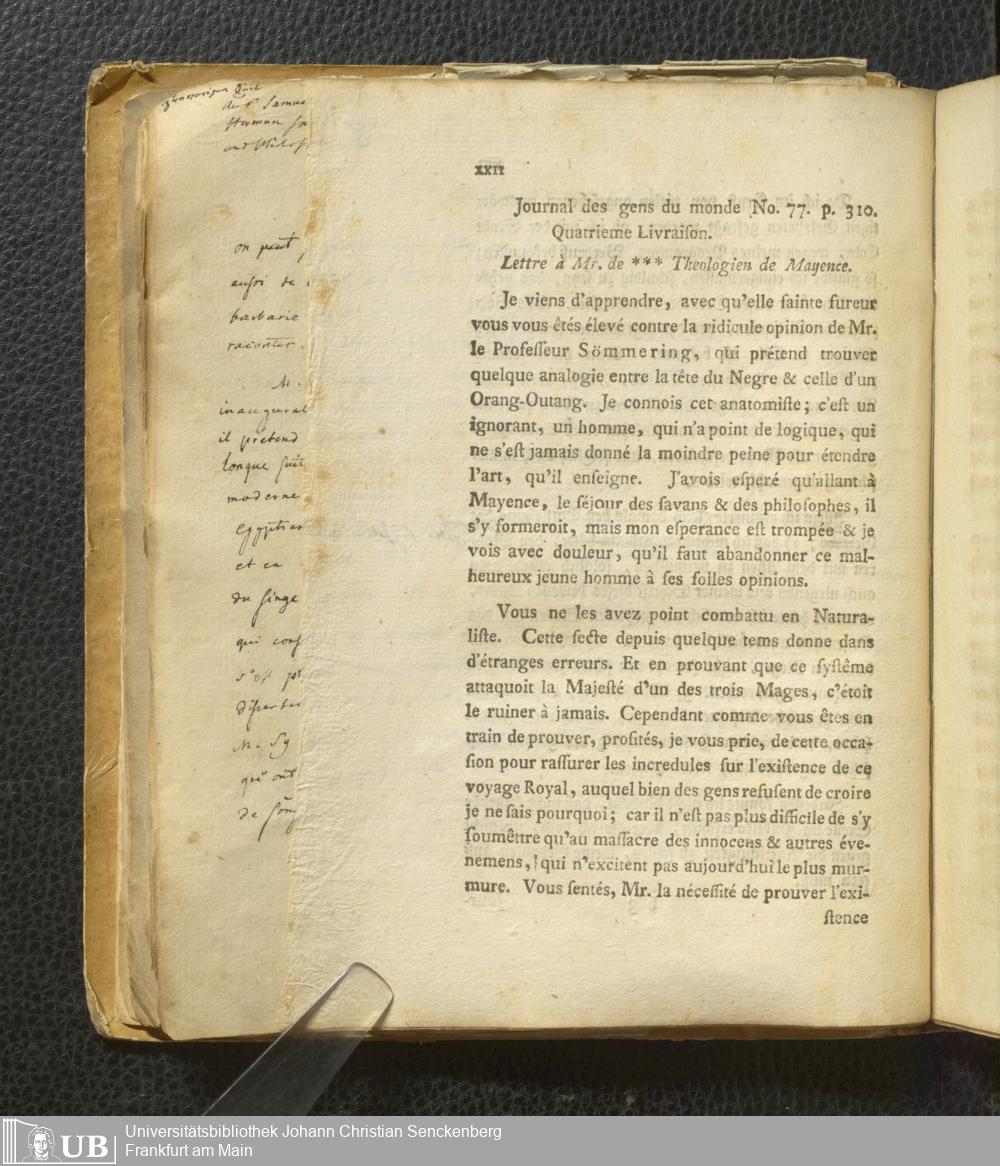 de Mr Samue
Herman
on peut
aussi de
barbarie
raconter.
M.
inaugural
il pretend
lonque
moderne
Egyptien
et en
du singe
qui
disserta
M. Sö
qui ont
de
xxii
Journal des gens du monde No. 77. p. 310.
Quatrieme Livraiſon.
Lettre à Mr. de *** Theologien de Mayence.
Je viens d'apprendre, avec qu'elle ſainte fureur
vous vous êtés élevé contre la ridicule opinion de Mr.
le Profeſſeur Sömmering, qui prétend trouver
quelque analogie entre la tête du Negre & celle d'un
Orang-Outang. Je connois cet anatomiſte; c'eſt un
ignorant, un homme, qui n'a point de logique, qui
ne s'eſt jamais donné la moindre peine pour étendre
l'art, qu'il enſeigne. J'avois eſperé qu'allant à
Mayence, le ſéjour des ſavans & des philoſophes, il
s'y formeroit, mais mon eſperance eſt trompée & je
vois avec douleur, qu'il faut abandonner ce mal-
heureux jeune homme à ſes folles opinions.
Vous ne les avez point combattu en Natura-
liſte. Cette ſecte depuis quelque tems donne dans
d'étranges erreurs. Et en prouvant que ce ſyſtême
attaquoit la Majeſté d'un des trois Mages, c'étoit
le ruiner à jamais. Cependant comme vous êtes en
train de prouver, profités, je vous prie, de cette occa-
ſion pour raſſurer les incredules ſur l'exiſtence de ce
voyage Royal, auquel bien des gens refuſent de croire
je ne ſais pourquoi; car il n'eſt pas plus difficile de s'y
ſoumêttre qu'au maſſacre des innocens & autres éve-
nemens, qui n'excitent pas aujourd'hui le plus mur-
mure. Vous ſentés, Mr. la néceſſité de prouver l'exi-
ſtence
UB
Universitätsbibliothek Johann Christian Senckenberg
Frankfurt am Main